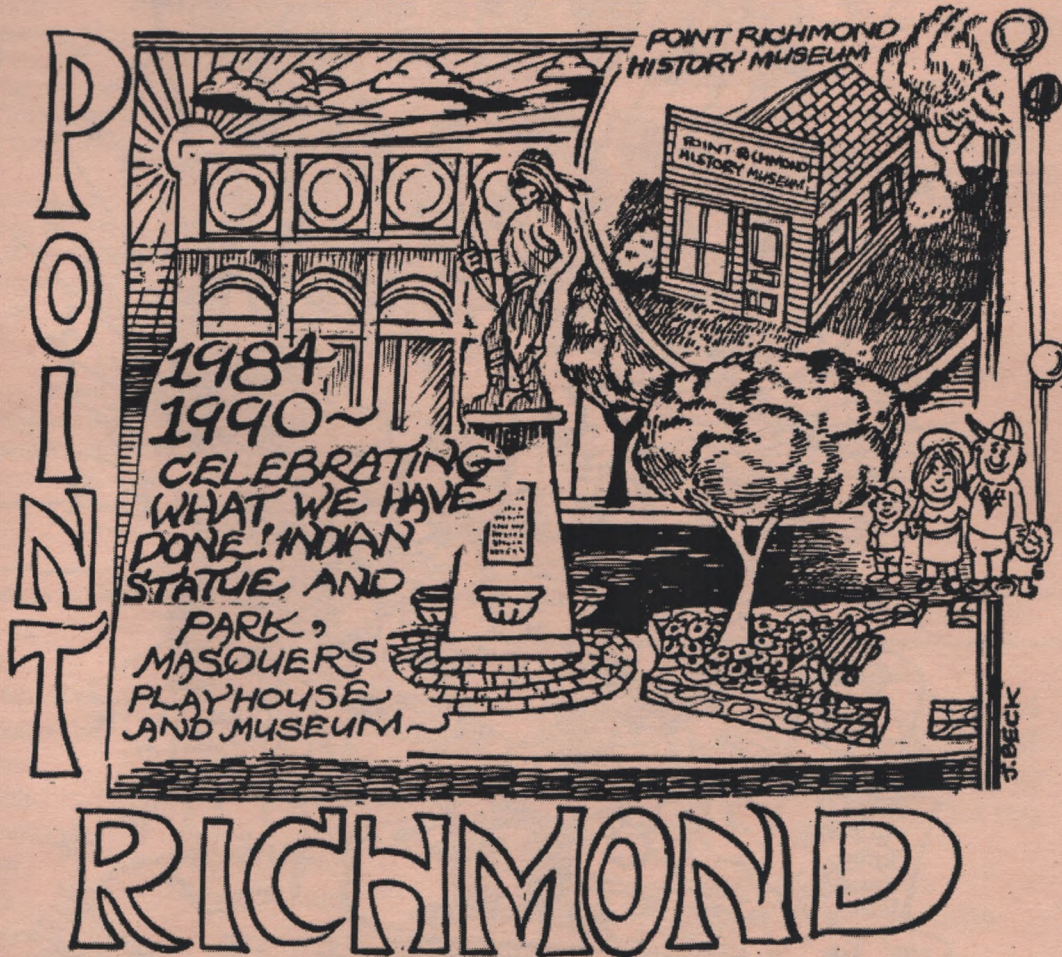 POINT
RICHMOND
POINT RICHMOND
HISTORY MUSEUM
POINT RICHMOND
HISTORY MUSEUM
1984
1990~
CELEBRATING
WHAT WE HAVE
DONE! INDIAN
STATUE AND
PARK,
MASQUERS
PLAYHOUSE
AND MUSEUM~
J. BECK